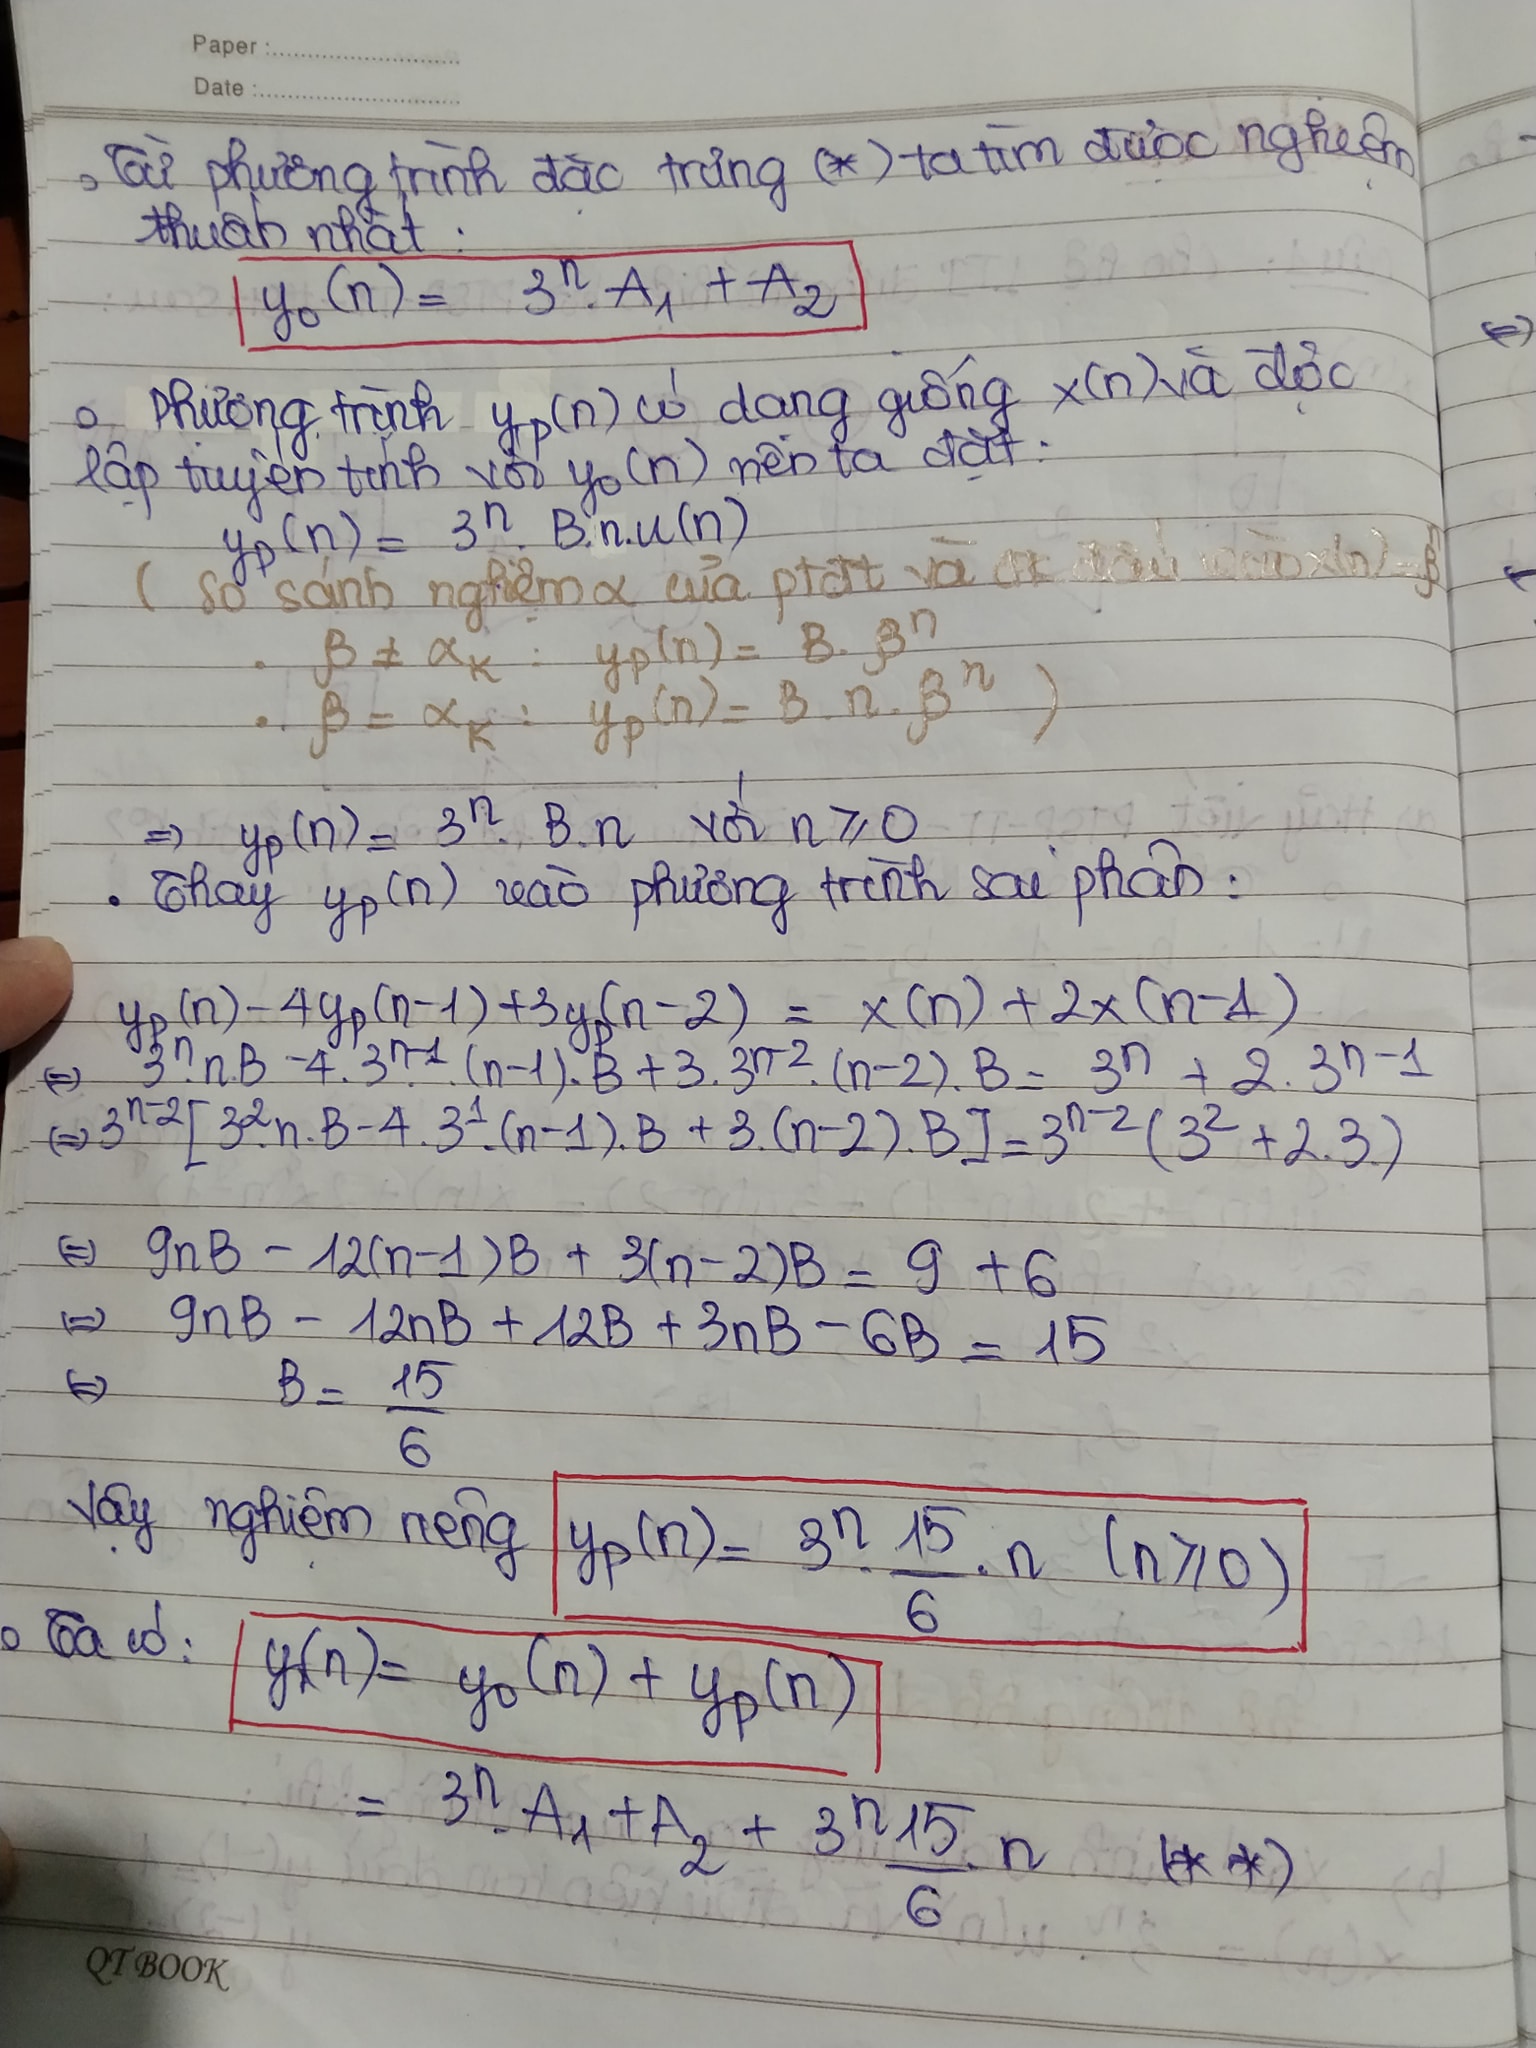 Paper :
Date :
Từ phương trình đặc trưng (*) ta tìm được nghiệm
thuần nhất :
y₀(n) = 3ⁿ.A₁ + A₂
Phương trình yₚ(n) có dạng giống x(n) và độc
lập tuyến tính với y₀(n) nên ta đặt :
yₚ(n) = 3ⁿ.B.n.u(n)
( So sánh nghiệm α của ptđt và đầu vào x(n) = β
. β ≠ αₖ : yₚ(n) = B.βⁿ
. β = αₖ : yₚ(n) = B.n.βⁿ )
=> yₚ(n) = 3ⁿ.B.n với n ⩾ 0
. Thay yₚ(n) vào phương trình sai phân :
yₚ(n) - 4yₚ(n-1) + 3yₚ(n-2) = x(n) + 2x(n-1)
<=> 3ⁿ.n.B - 4.3ⁿ⁻¹.(n-1).B + 3.3ⁿ⁻².(n-2).B = 3ⁿ + 2.3ⁿ⁻¹
<=> 3ⁿ⁻²[3².n.B - 4.3¹.(n-1).B + 3.(n-2).B] = 3ⁿ⁻²(3² + 2.3.)
<=> 9nB - 12(n-1)B + 3(n-2)B = 9 + 6
<=> 9nB - 12nB + 12B + 3nB - 6B = 15
<=> B = 15/6
Vậy nghiệm riêng yₚ(n) = 3ⁿ.15/6.n (n ⩾ 0)
Ta có : y(n) = y₀(n) + yₚ(n)
= 3ⁿ.A₁ + A₂ + 3ⁿ 15/6.n (**)
QT BOOK